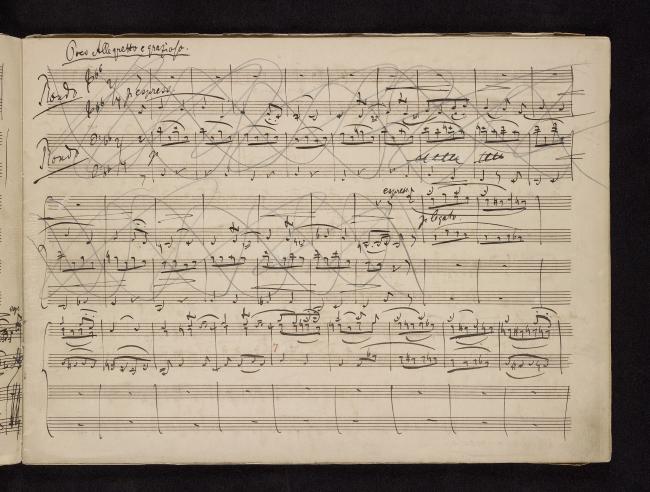 Poco Allegretto e grazioso.
Rondo
p espress
Rondo
p
espress
p legato
7